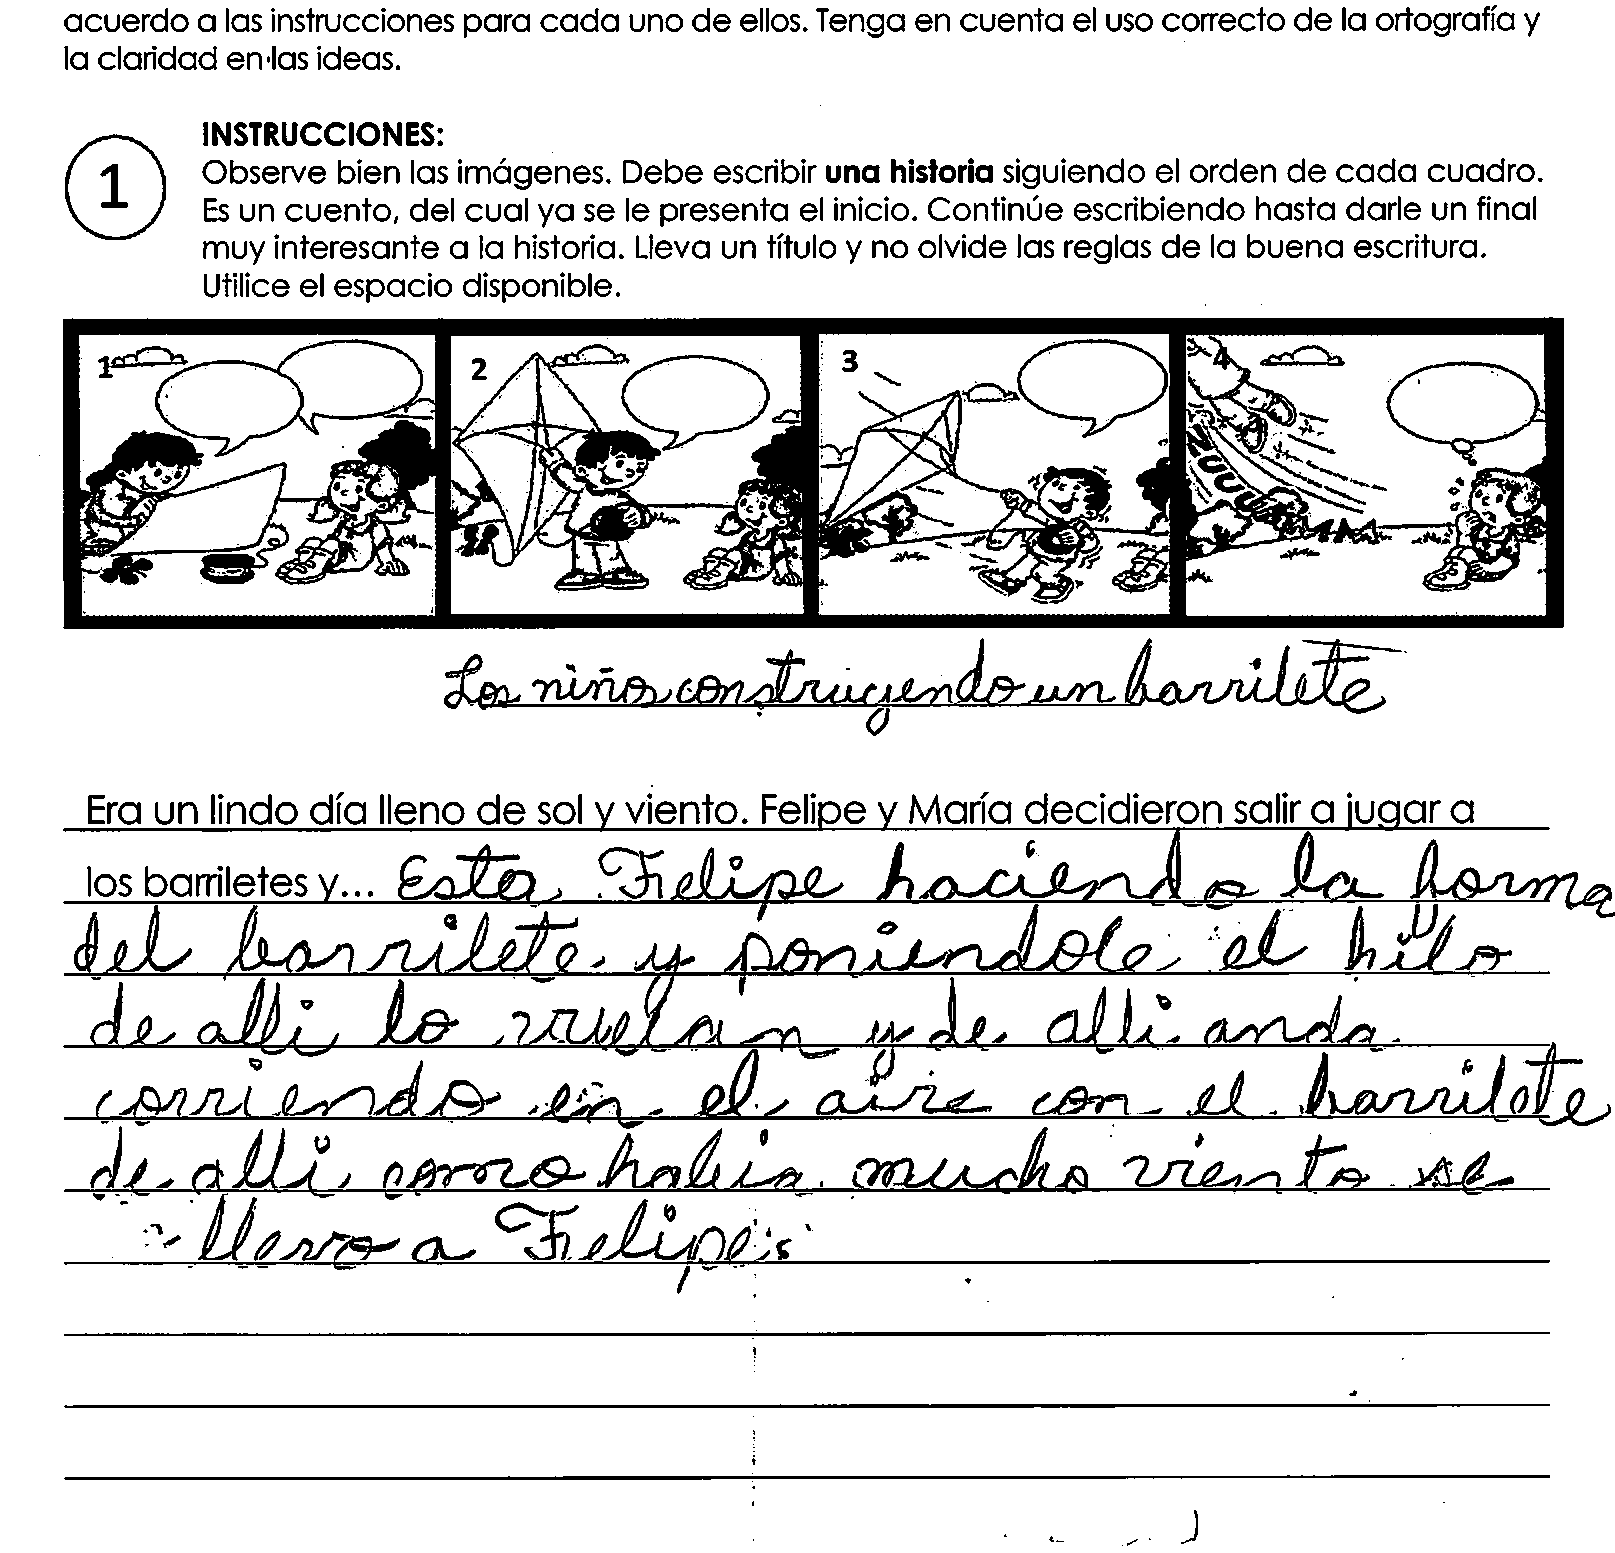 acuerdo a las instrucciones para cada uno de ellos. Tenga en cuenta el uso correcto de la ortografía y
la claridad en las ideas.
1
INSTRUCCIONES:
Observe bien las imágenes. Debe escribir una historia siguiendo el orden de cada cuadro.
Es un cuento, del cual ya se le presenta el inicio. Continúe escribiendo hasta darle un final
muy interesante a la historia. Lleva un título y no olvide las reglas de la buena escritura.
Utilice el espacio disponible.
1 2 3 4
ZUUUUMMM
Los niños construyendo un barrilete
Era un lindo día lleno de sol y viento. Felipe y María decidieron salir a jugar a
los barriletes y... Esta Felipe haciendo la horma
del barrilete y poniendole el hilo
de alli lo vuelan y de alli anda
corriendo en el aire con el barrilete
de alli como habia mucho viento se
llevo a Felipe